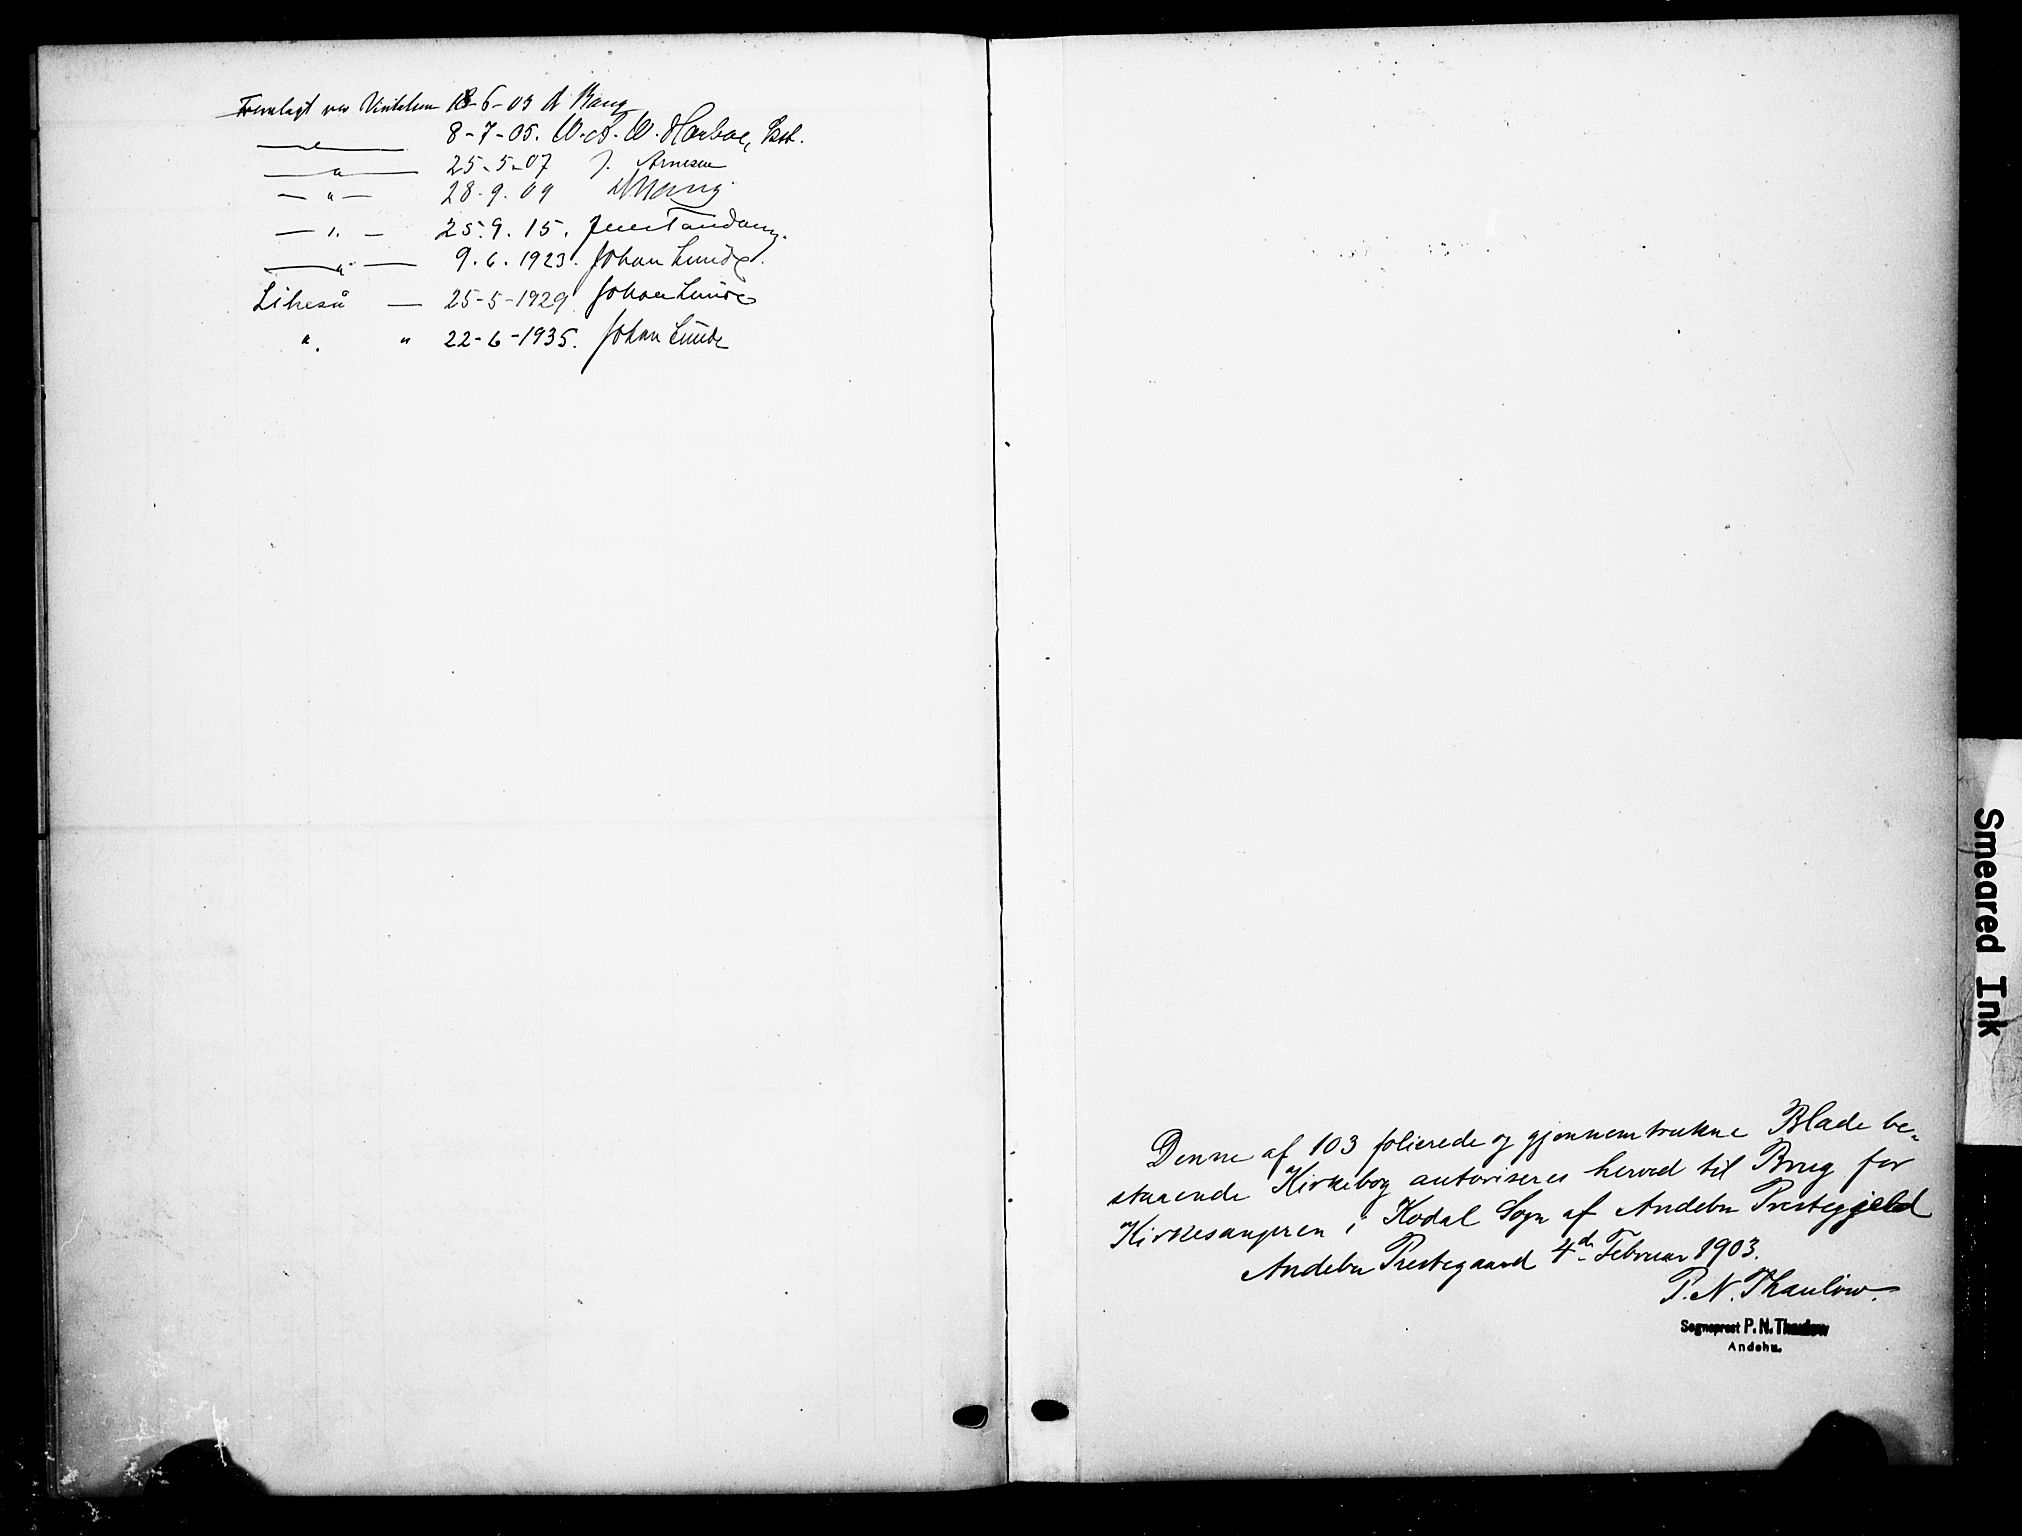 Fremlagt ved Visitatsen 18-6-03 A Bang
— " — 8-7-05. W. A. W. Harboe, Bst.
— " — 25-5-07 J. Arnesen
— " — 28-9.09 A Bang.
— " — 25.9.15. Jens Tandberg.
— " — 9.6.1923. Johan Lunde.
Likeså — 25-5-1929 Johan Lunde
" " 22-6-1935. Johan Lunde
Denne af 103 folierede og gjennemtrukne Blade be-
staaende Kirkebog autoriseres herved til Brug for
Kirkesangeren i Kodal Sogn af Andebu Prestegjeld
Andebu Prestegaard 4de Februar 1903.
P. N. Thaulow.
Sogneprest P. N. Thaulow
Andebu.
Smeared Ink